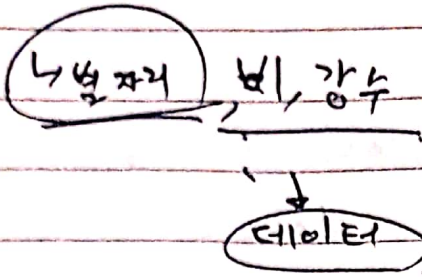 ↳ 별자리, 비, 강수
↓
데이터